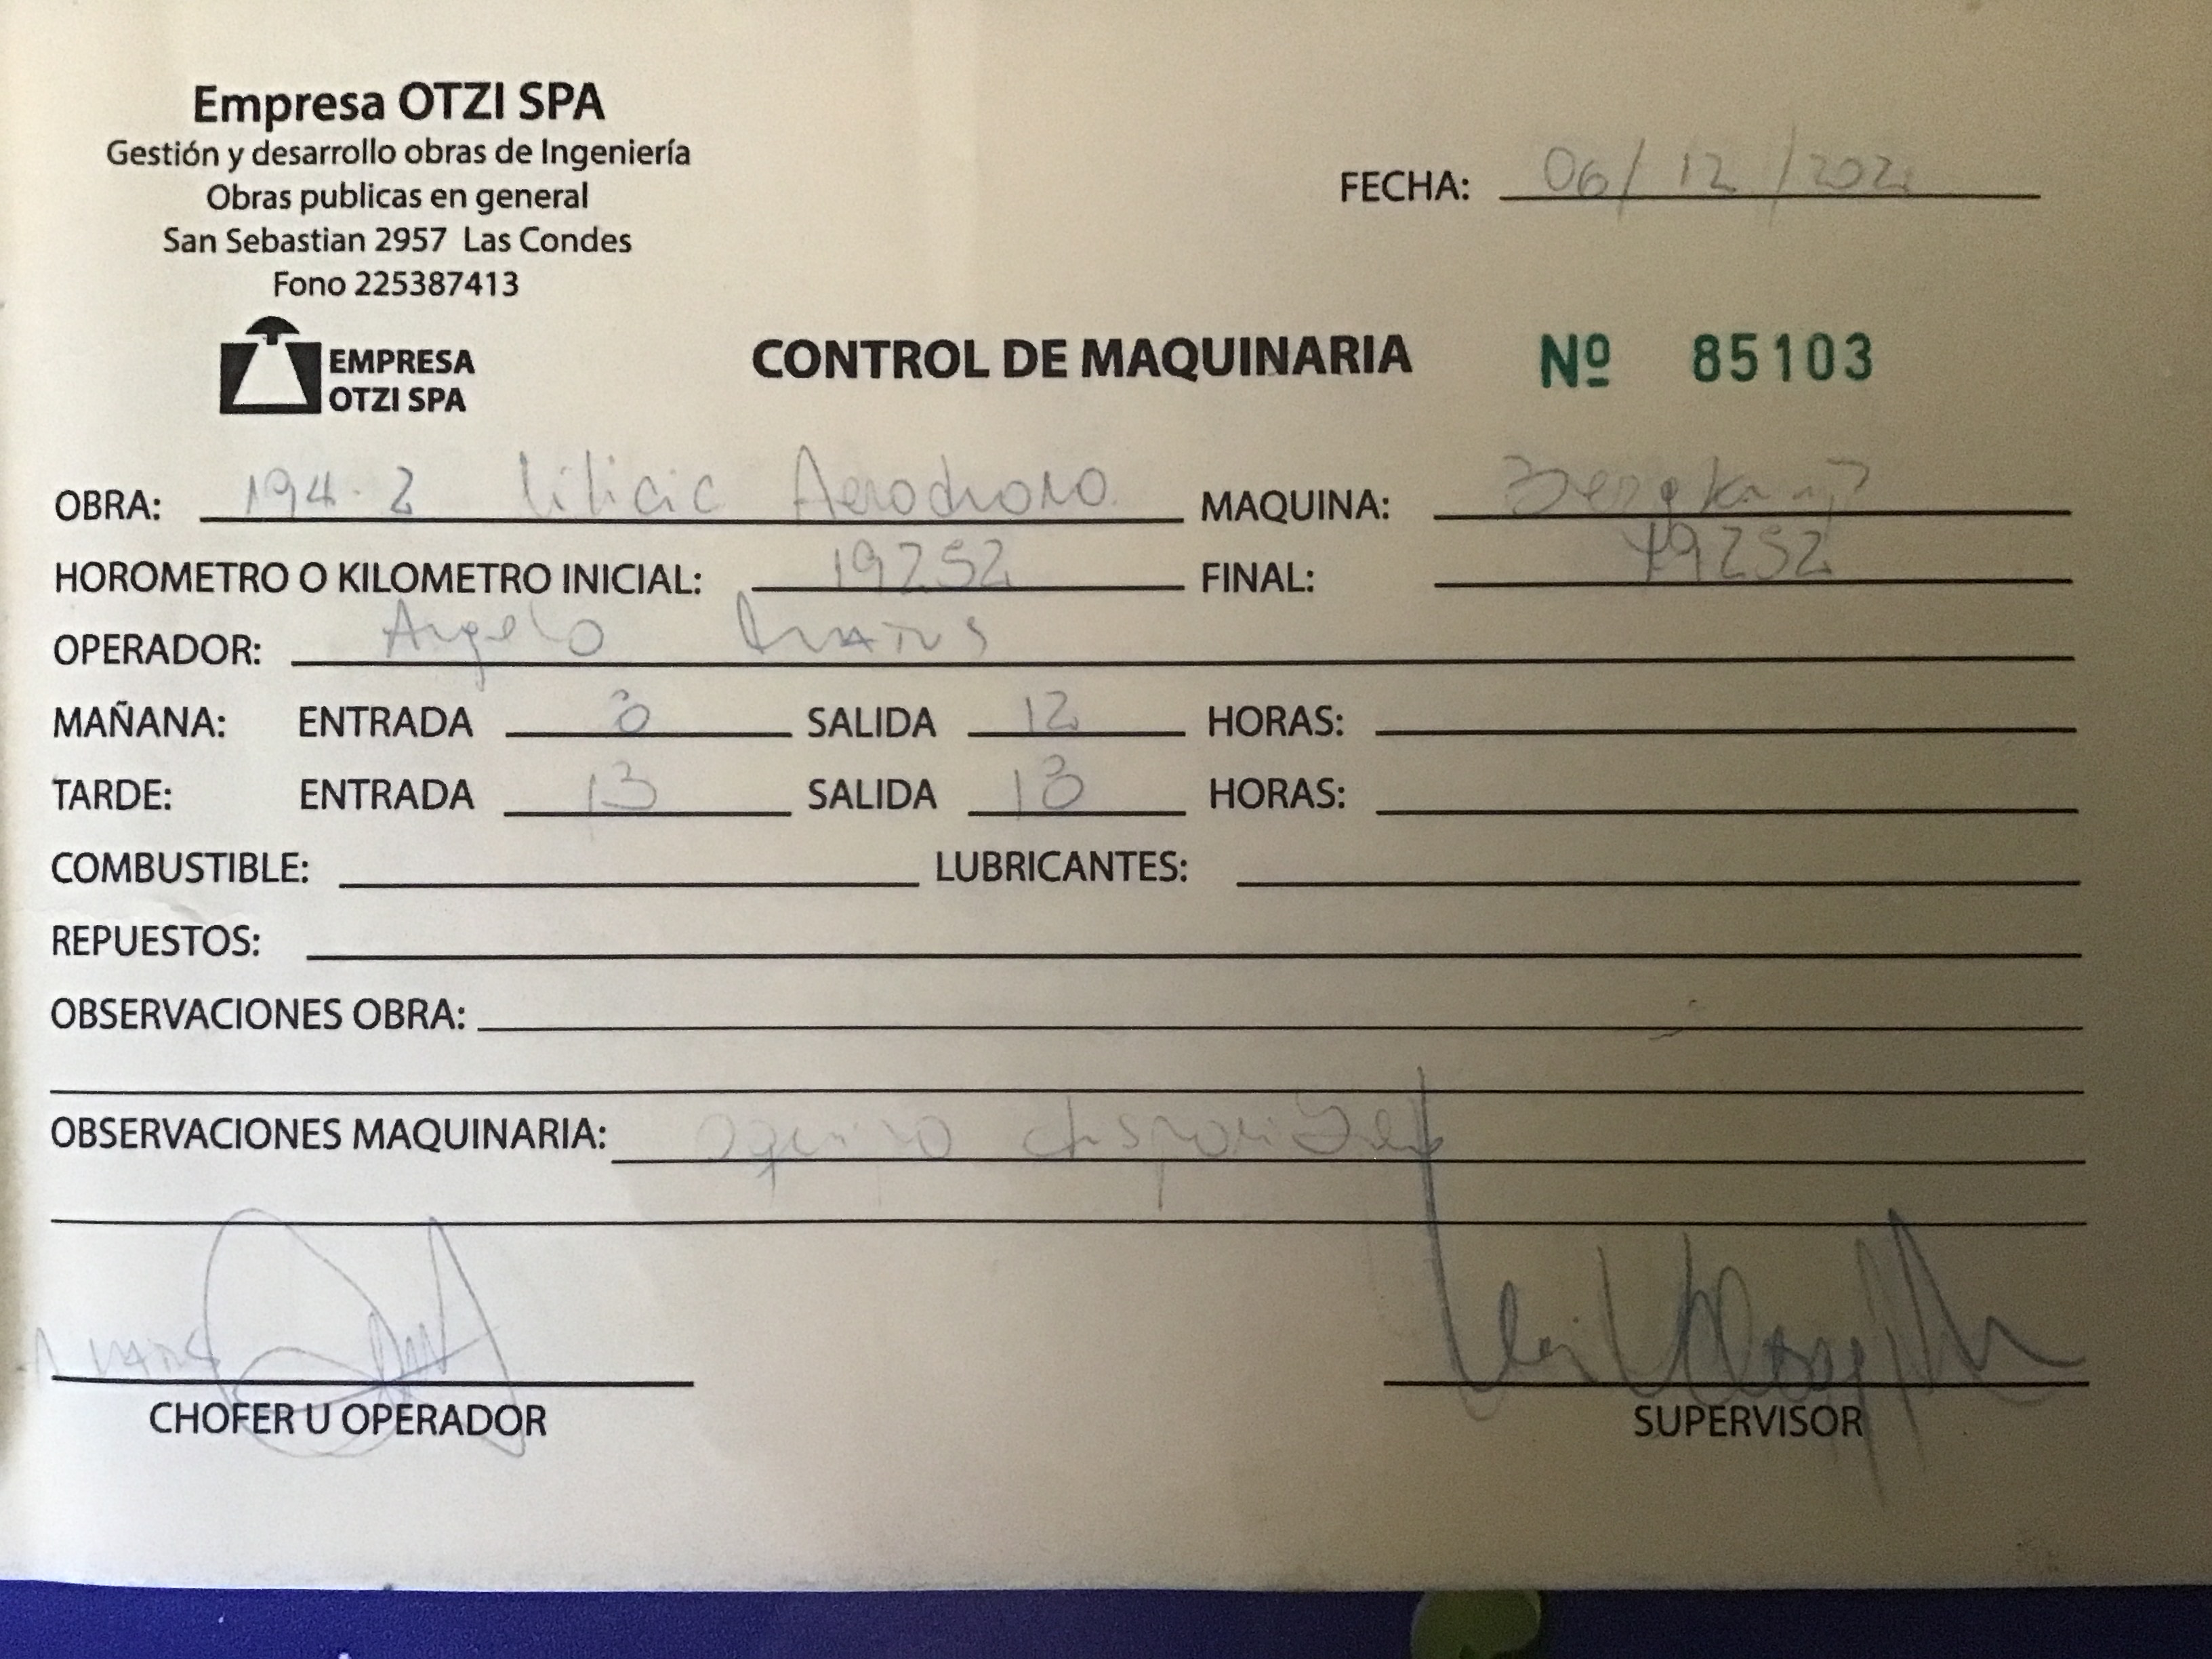 Empresa OTZI SPA
Gestión y desarrollo obras de Ingeniería
Obras publicas en general
San Sebastian 2957 Las Condes
Fono 225387413
FECHA: 06/12/202
EMPRESA
OTZI SPA
CONTROL DE MAQUINARIA Nº 85103
OBRA: 194.2 Aerodromo MAQUINA:
HOROMETRO O KILOMETRO INICIAL: 19252 FINAL: 19252
OPERADOR: Angelo
MAÑANA: ENTRADA 8 SALIDA 12 HORAS:
TARDE: ENTRADA 13 SALIDA 18 HORAS:
COMBUSTIBLE: LUBRICANTES:
REPUESTOS:
OBSERVACIONES OBRA:
OBSERVACIONES MAQUINARIA: equipo
CHOFER U OPERADOR SUPERVISOR